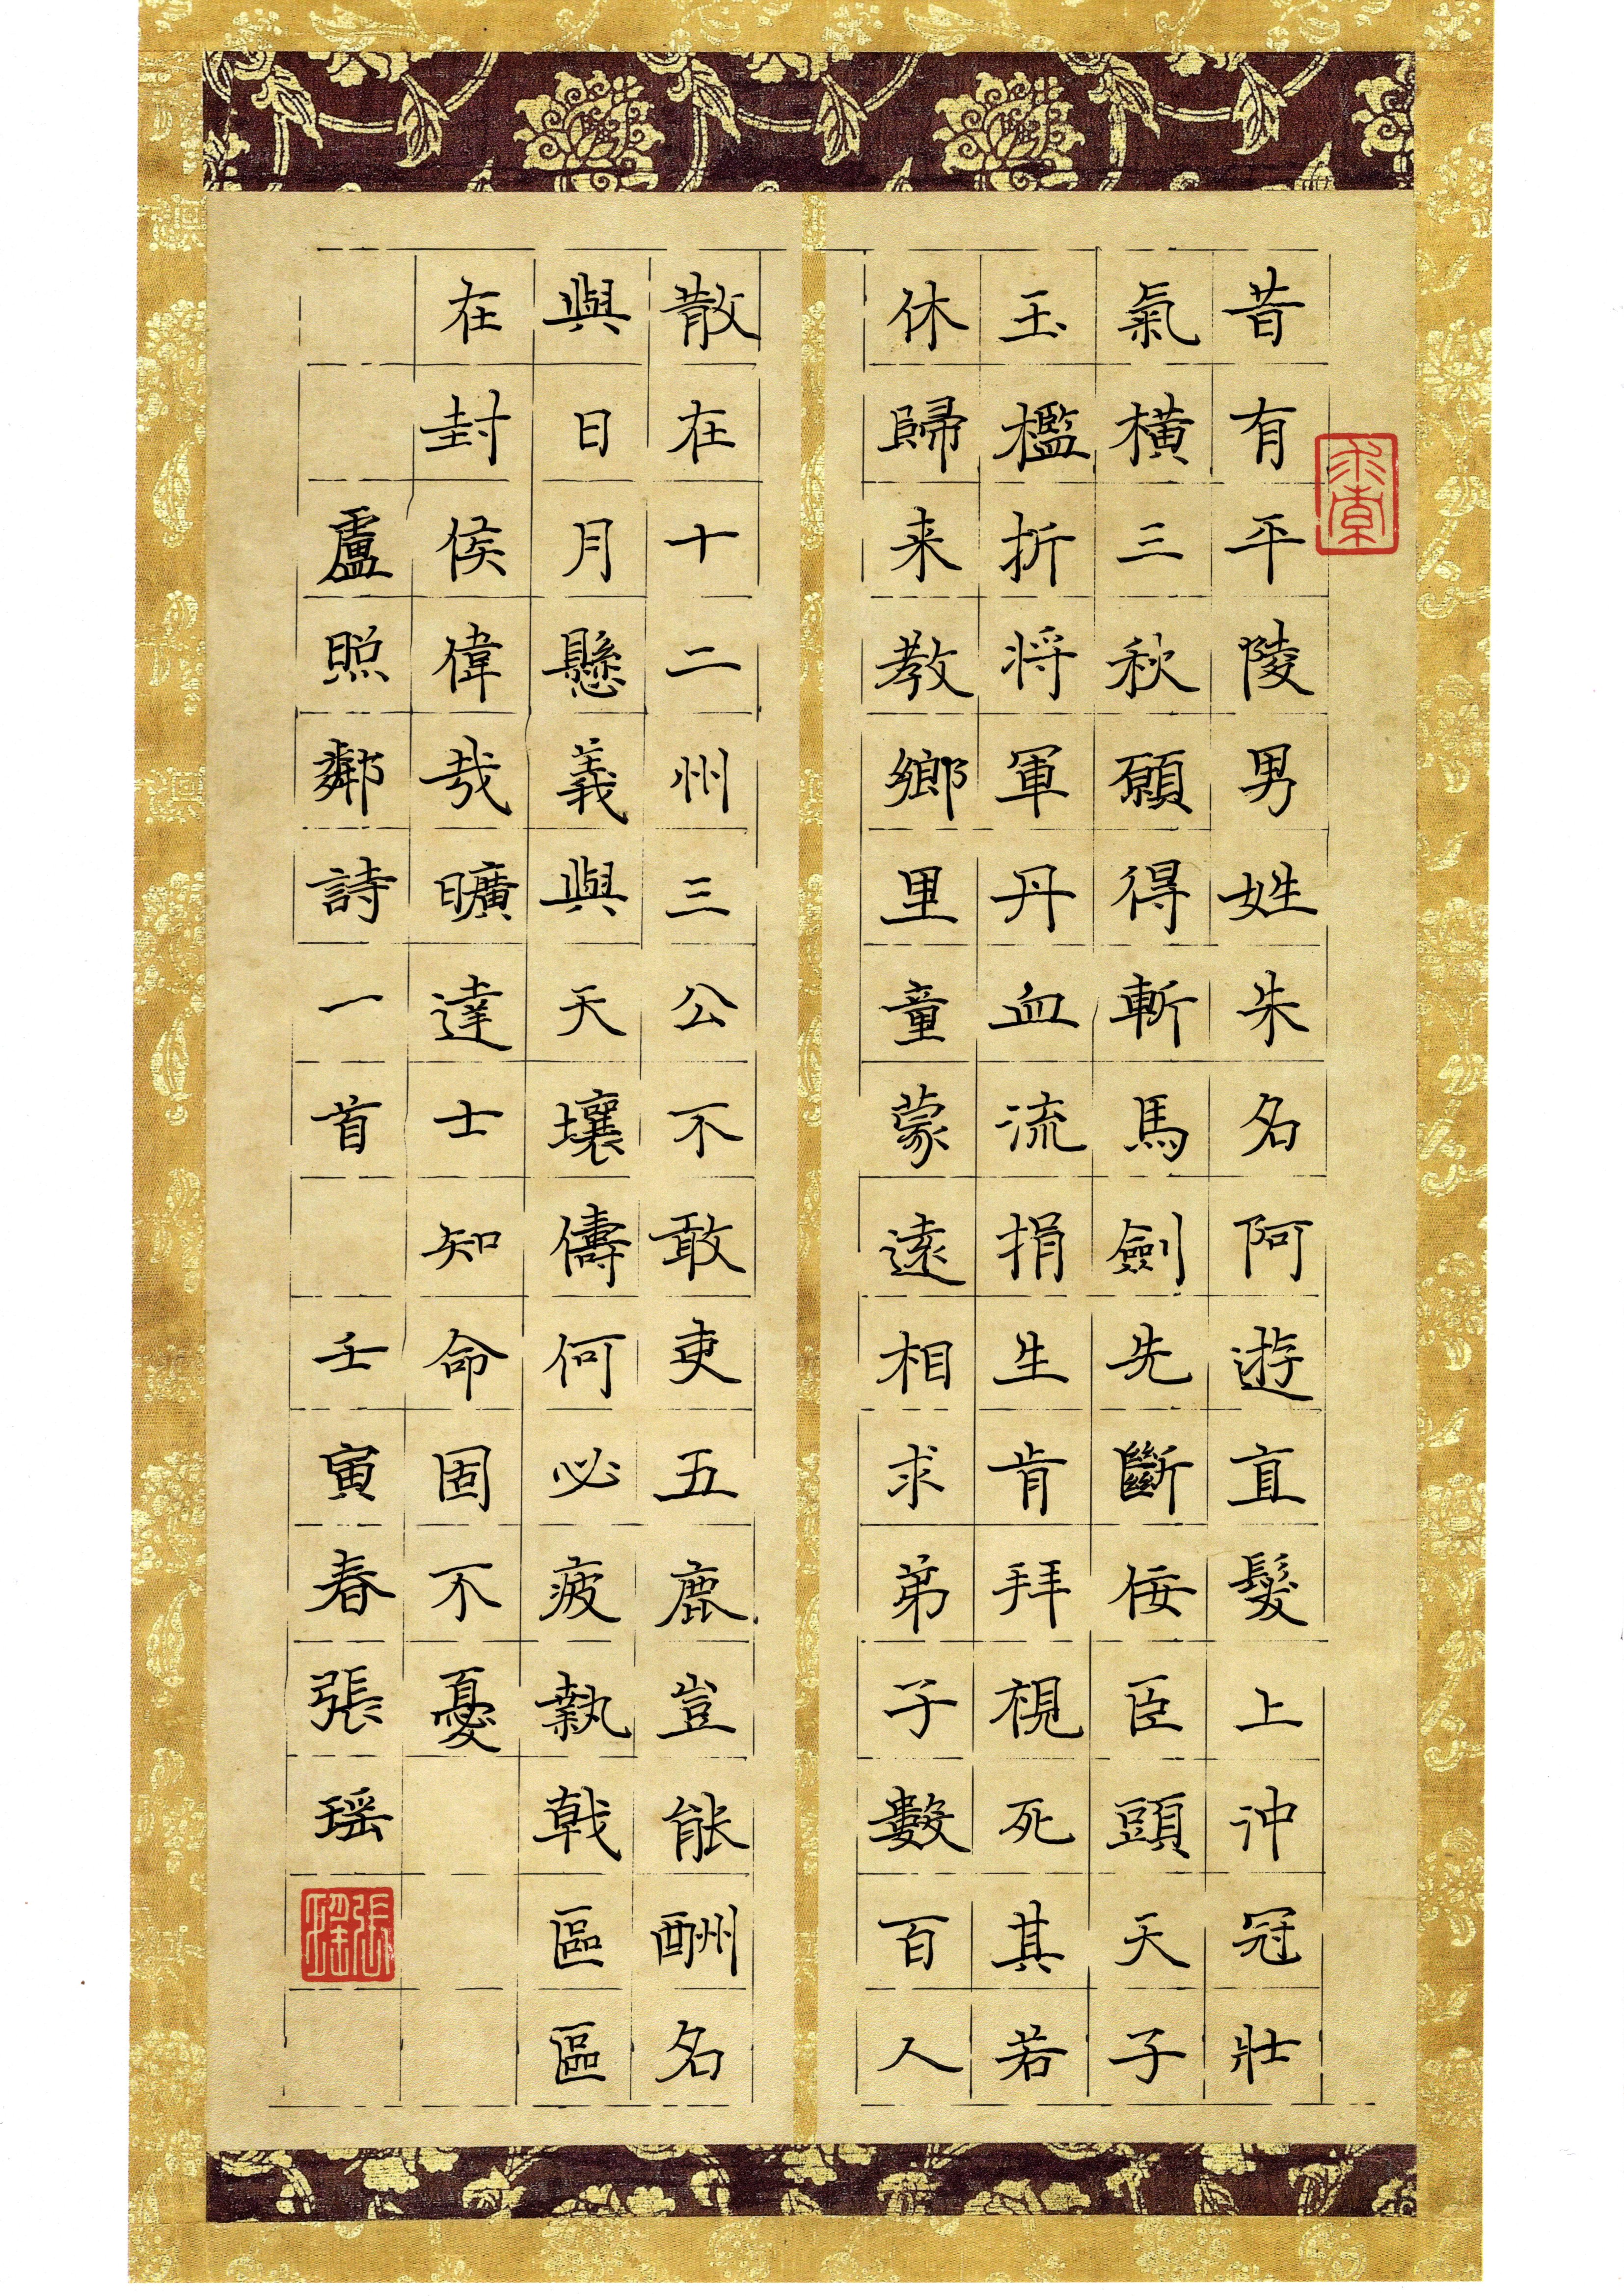 昔有平陵男姓朱名阿遊直髮上沖冠壯
氣橫三秋願得斬馬劍先斷佞臣頭天子
玉檻折将軍丹血流捐生肯拜視死其若
休歸来教鄉里童蒙遠相求弟子數百人
散在十二州三公不敢吏五鹿豈能酬名
與日月懸義與天壤儔何必疲執戟區區
在封侯偉哉曠達士知命固不憂
盧照鄰詩一首 壬寅春張瑶